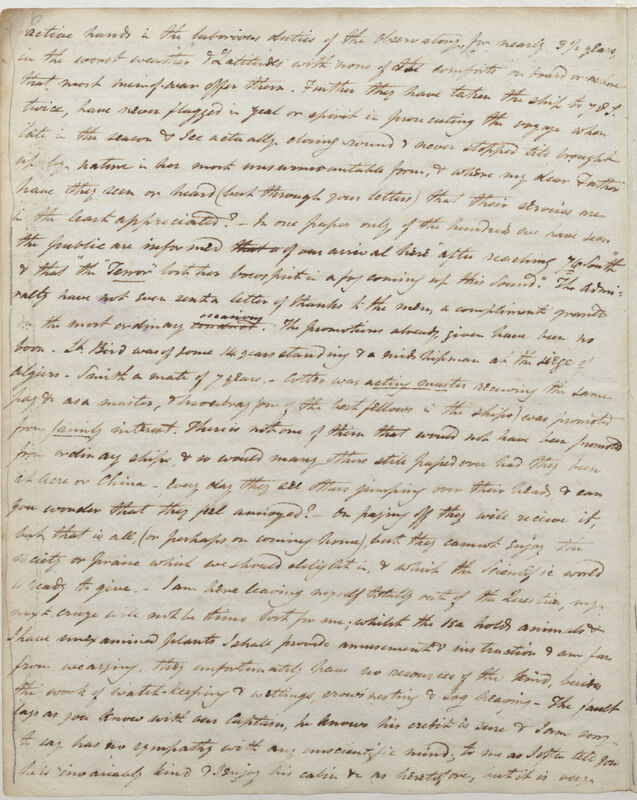 active hands in the laborious duties of the observatory, for nearly 3½ years
in the worst weather & Latitudes with none of the comforts on board or
that most men of war offer them. Further they have taken the ship to 78 S.
twice, have never flagged in zeal or spirit in prosecuting the voyage when
late in the season & Ice actually closing round & never stopped till brought
up by nature in her most unsurmountable form, & where my dear Father
have they seen or heard (but through your letters) that their services are
in the least appreciated? - In one paper only of the hundreds we have seen
the public are informed that a of our arrival here "after reaching 76 South"
& that "the "Terror" lost her bowsprit in a fog coming up this Sound." The Admi-
ralty have not even sent a letter of thanks to the men, a compliment granted
on the most ordinary conduct occasions. The promotions already given have been no
boon. Lt Bird was of some 14 years standing & a midshipman at the siege of
Algiers - Smith a mate of 7 years. - Cotter was acting master receiving the same
pay & as a master, & (one of the best fellows in the ships) was promoted
from family interest. There is not one of them that would not have been promoted
from ordinary ships, & so would many others still passed over had they been
at Acre or China - Every day they see others jumping over their heads & can
you wonder that they feel annoyed? - On paying off they will receive it,
but that is all, (or perhaps on coming home), but they cannot enjoy the
society or praise which we should delight in, & which the Scientific world
is ready to give. - I am here leaving myself totally out of the Question, my
next cruize will not be time lost for me; whilst the sea holds animals &
I have unexamined plants I shall provide amusement & instruction & am far
from wearying, they unfortunately have no resources of the kind, besides
the work of watch-keeping & wettings, crow's nesting & log heaving - The fault
lays as you know with our Captain, he knows his credit is sure & I am sorry
to say has no sympathy with any unscientific mind; to me as I often tell you
he is invariably kind & I enjoy his cabin &c as heretofore, but it is very